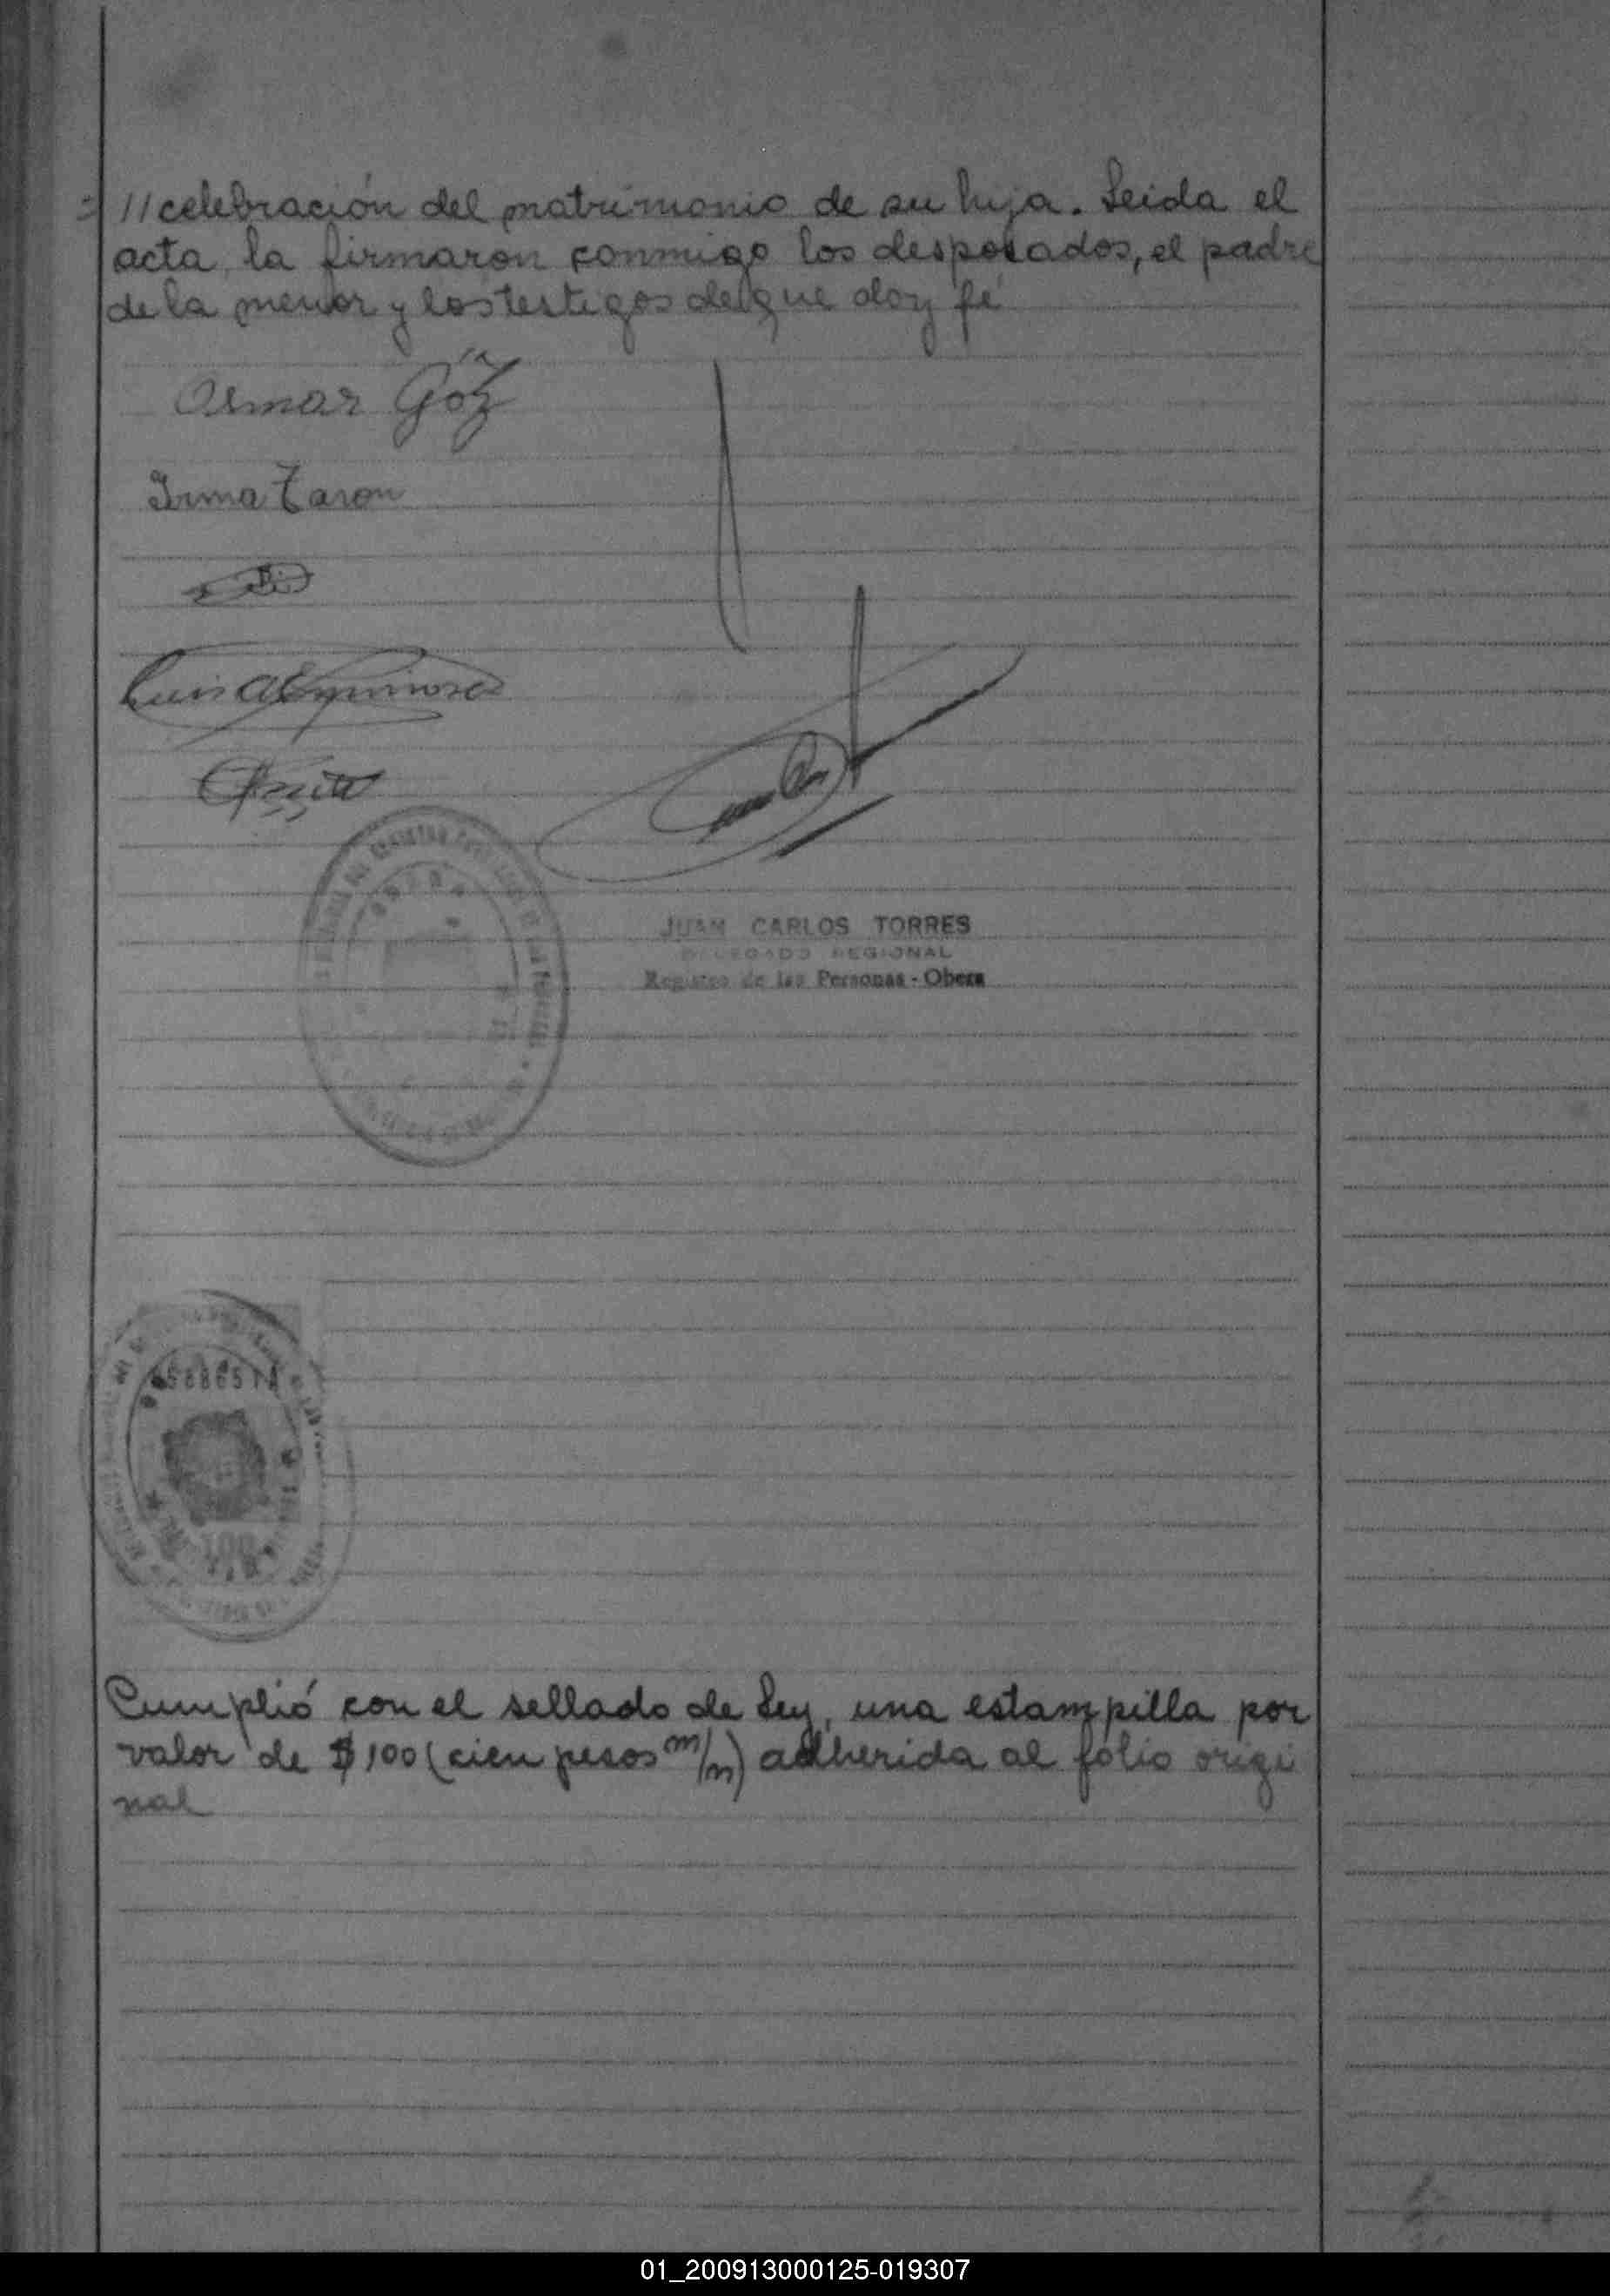 //celebración del matrimonio de su hija. Leida el
acta, la firmaron conmigo los desposados, el padre
de la menor y los testigos de que doy fé
Osmar Göz
Irma Zaron
Luis A Espinosa
JUAN CARLOS TORRES
DELEGADO REGIONAL
Registro de las Personas - Obera
100
Cumplió con el sellado de Ley, una estampilla por
valor de $100 (cien pesos m/n) adherida al folio origi
nal
01_200913000125-019307